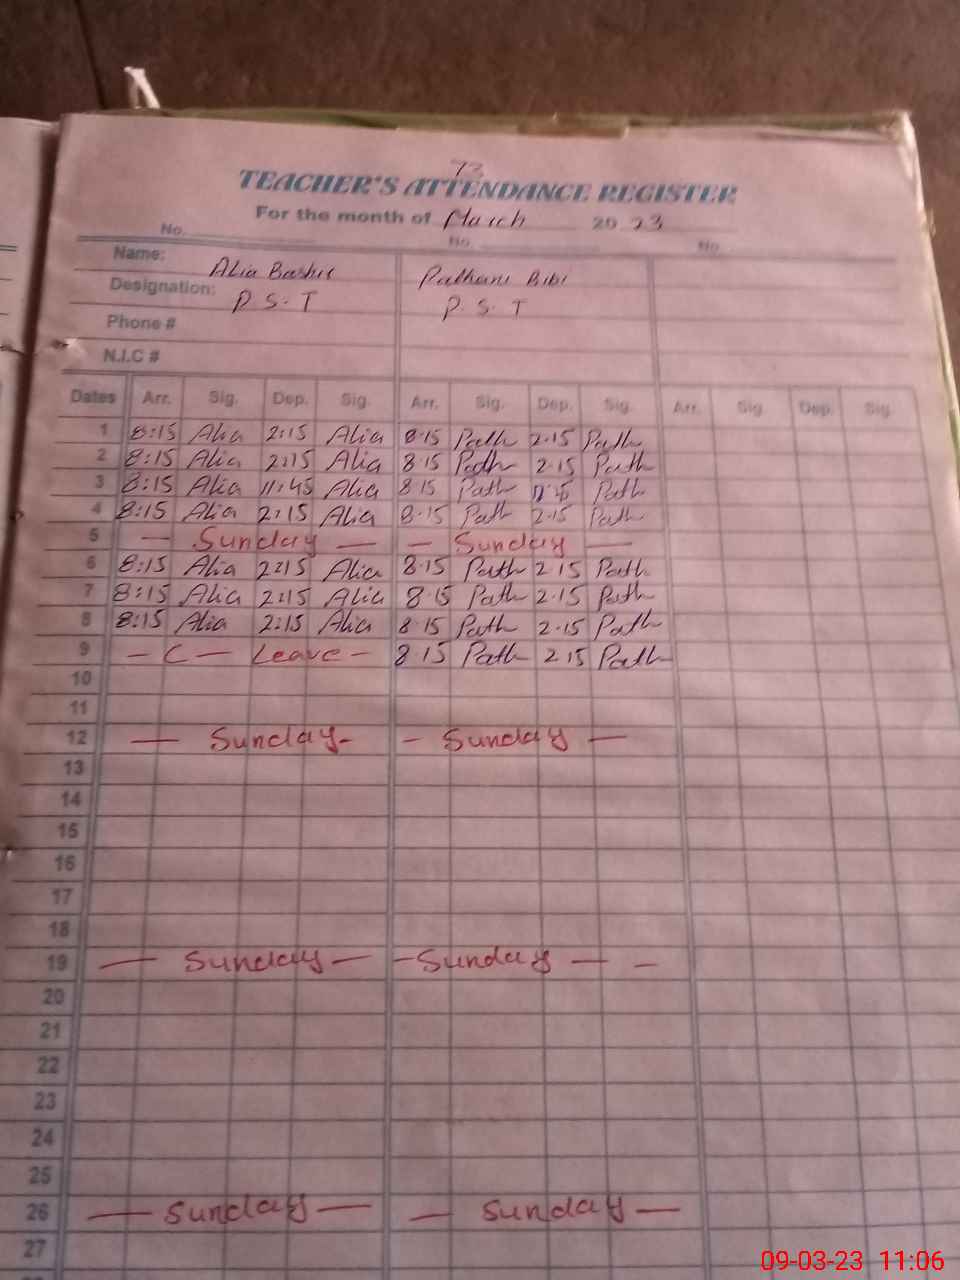 73
TEACHER'S ATTENDANCE REGISTER
For the month of March 2023
No. No. No.
Name: Alia Bashir Pathani Bibi
Designation: P.S.T P.S.T
Phone #
N.I.C #
Dates Arr. Sig. Dep. Sig. Arr. Sig. Dep. Sig. Arr. Sig. Dep. Sig.
1 8:15 Alia 2:15 Alia 8.15 Path 2.15 Path
2 8:15 Alia 2:15 Alia 8.15 Path 2.15 Path
3 8:15 Alia 11:45 Alia 8.15 Path Path
4 8:15 Alia 2:15 Alia 8.15 Path 2.15 Path
5 — Sunday — — Sunday —
6 8:15 Alia 2:15 Alia 8.15 Path 2.15 Path
7 8:15 Alia 2:15 Alia 8.15 Path 2.15 Path
8 8:15 Alia 2:15 Alia 8.15 Path 2.15 Path
9 — C — Leave — 8.15 Path 2.15 Path
10
11
12 — Sunday - - Sunday —
13
14
15
16
17
18
19 — Sunday — - Sunday — —
20
21
22
23
24
25
26 — Sunday — — Sunday —
27
09-03-23 11:06